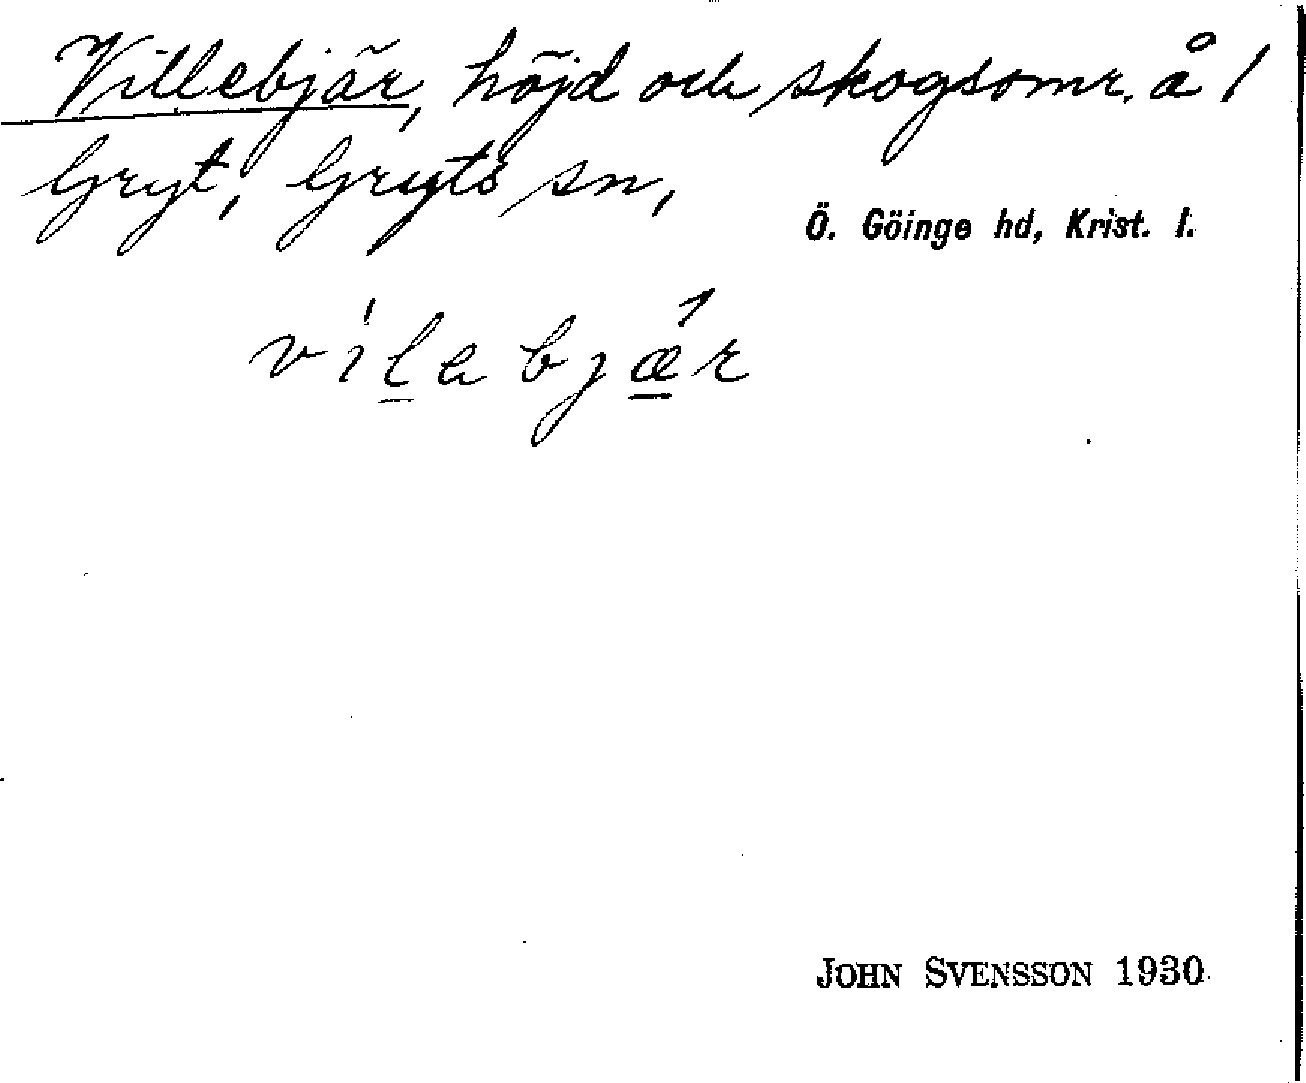 Villebjär, höjd och skogsomr. å 1
Gryt, Gryts sn,
Ö. Göinge hd, Krist. l.
vilabjær
JOHN SVENSSON 1930